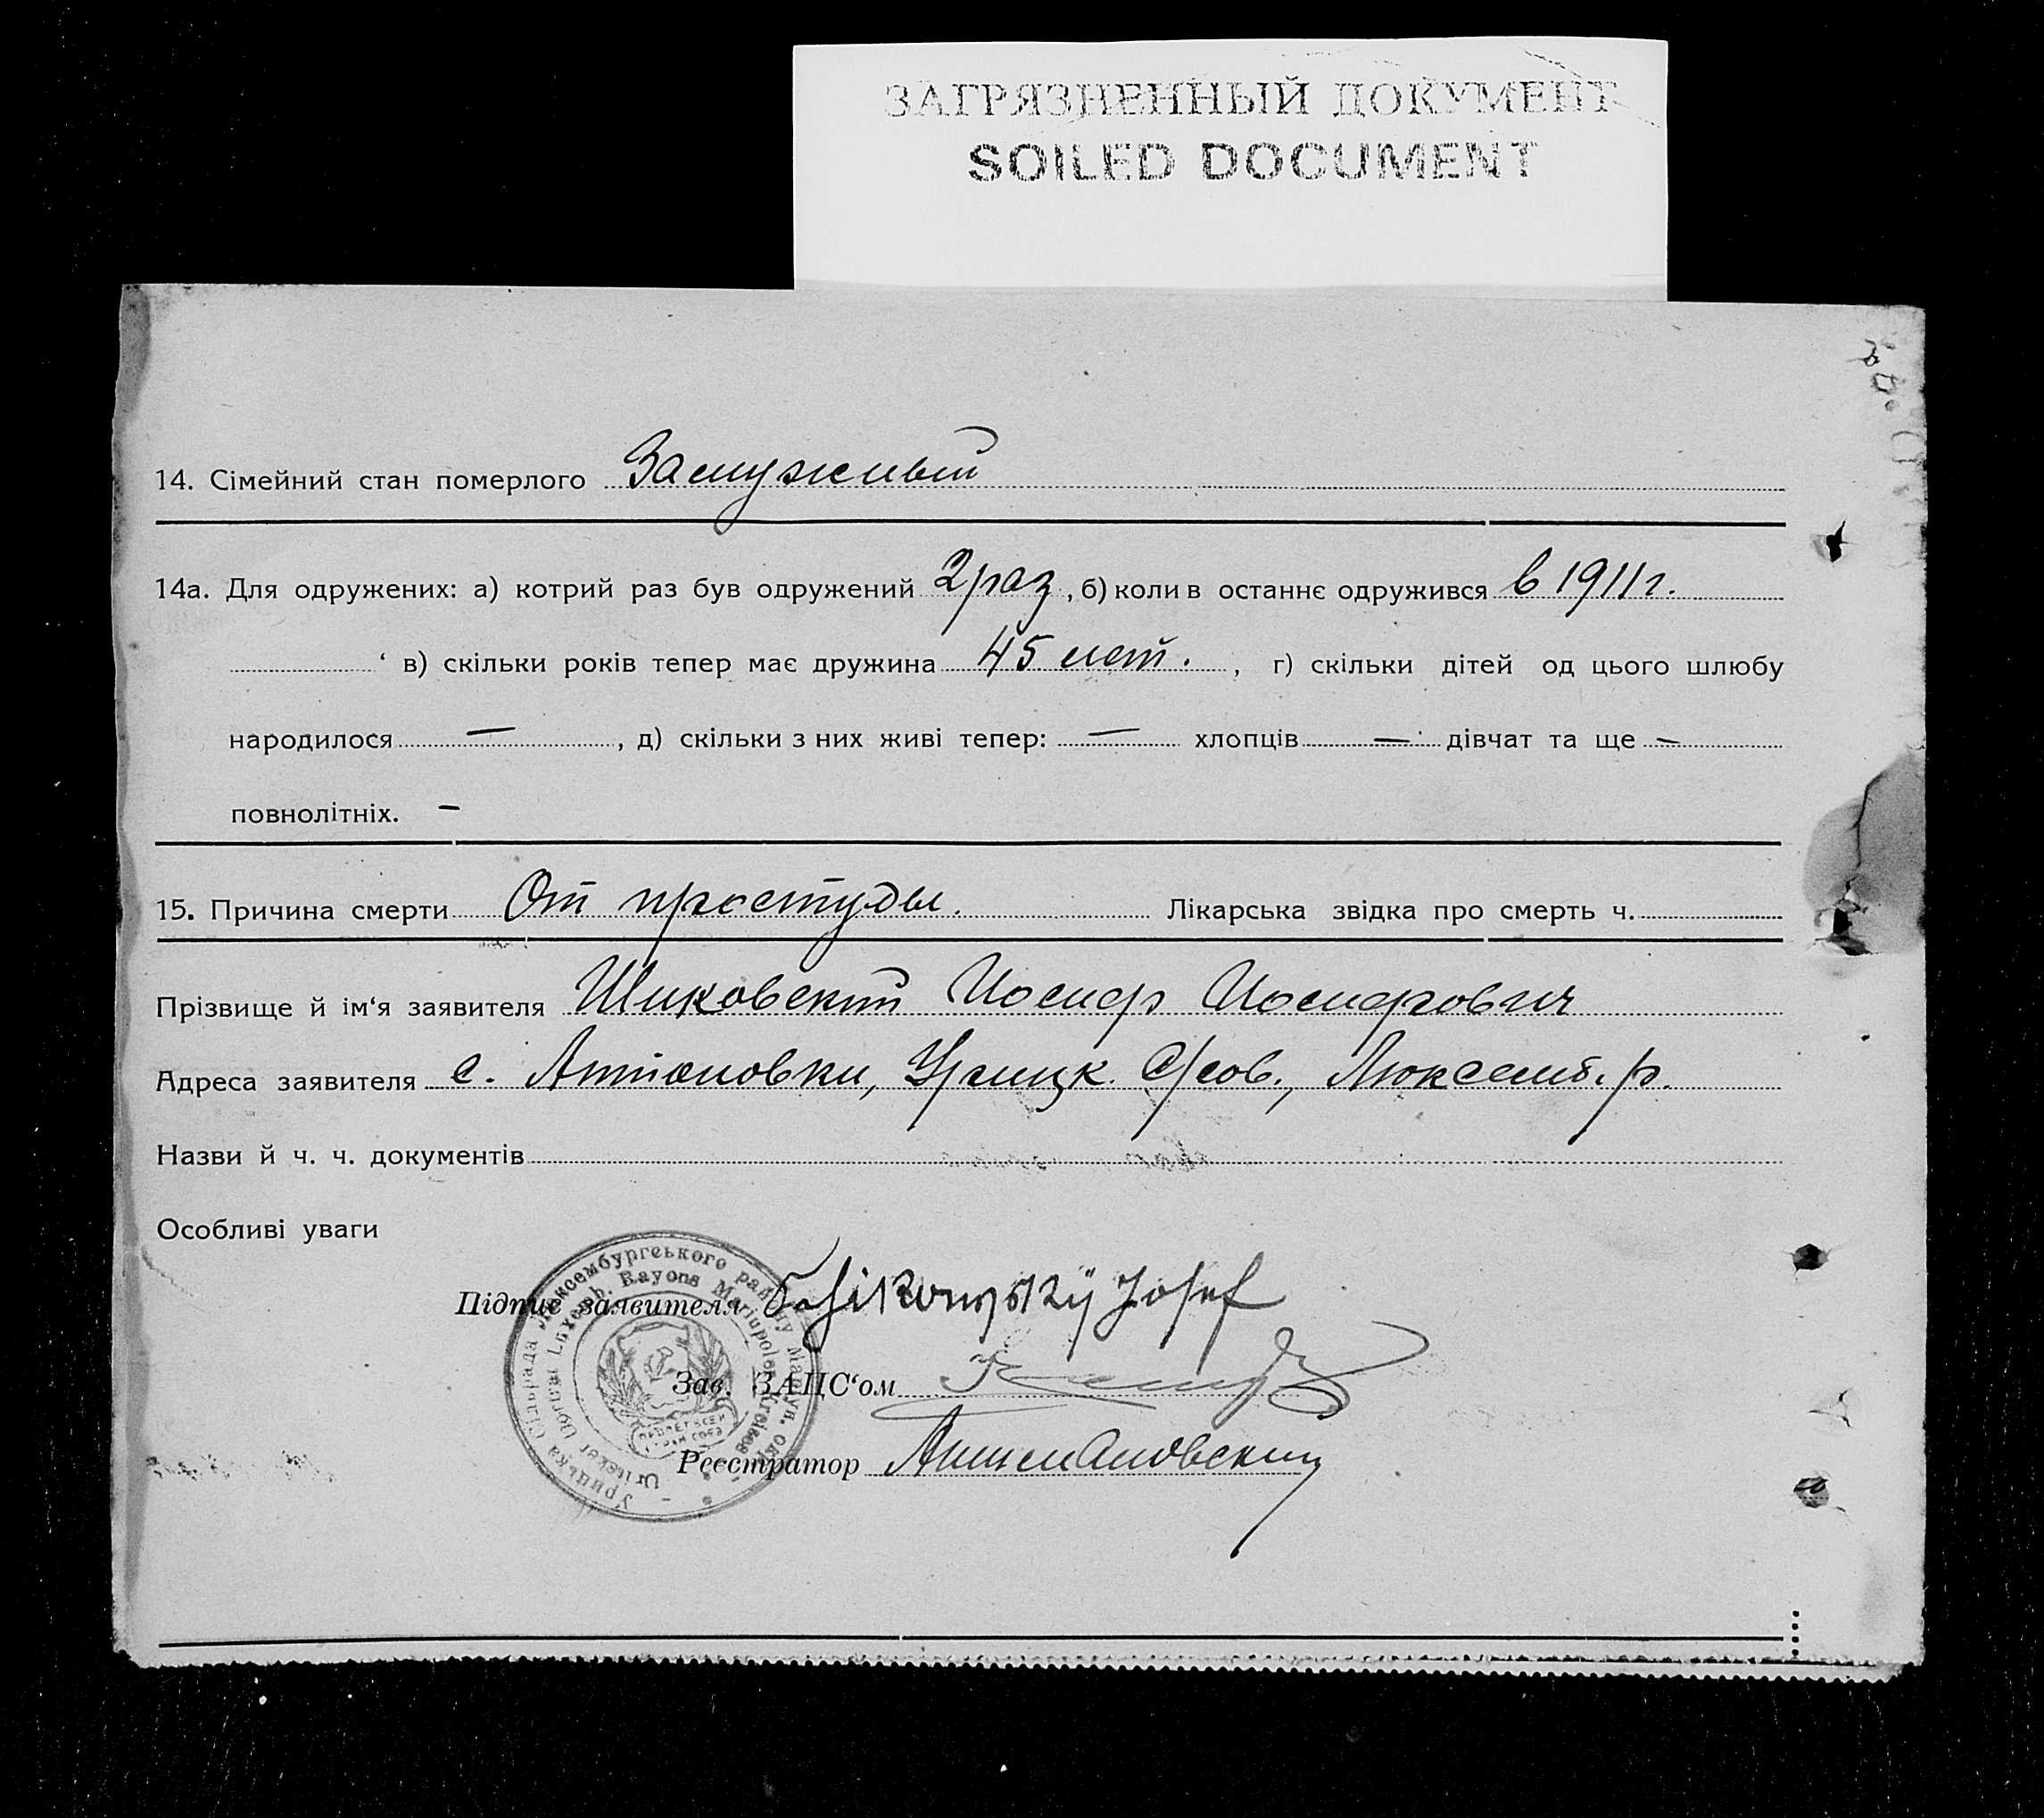 ЗАГРЯЗНЕННЫЙ ДОКУМЕНТ
SOILED DOCUMENT
14. Сімейний стан померлого Замужный
14а. Для одружених: а) котрий раз був одружений 2 раз, б) коли в останнє одружився в 1911 г.
в) скільки років тепер має дружина 45 лет., г) скільки дітей од цього шлюбу
народилося —, д) скільки з них живі тепер: — хлопців — дівчат та ще —
повнолітніх. —
15. Причина смерти От простуды. Лікарська звідка про смерть ч.
Прізвище й ім‘я заявителя Шиковский Иосиф Иосифович
Адреса заявителя с. Антоновки, Урицк. С/сов., Люксемб. р.
Назви й ч. ч. документів
Особливі уваги
Підпис заявителя Schikowsky Josef
Зав. ЗАЦС‘ом
Реєстратор
Урицька Сільрада Люксембургського району Маріуп. Окр.
Luxemb. Rayons Mariupoler Kreises